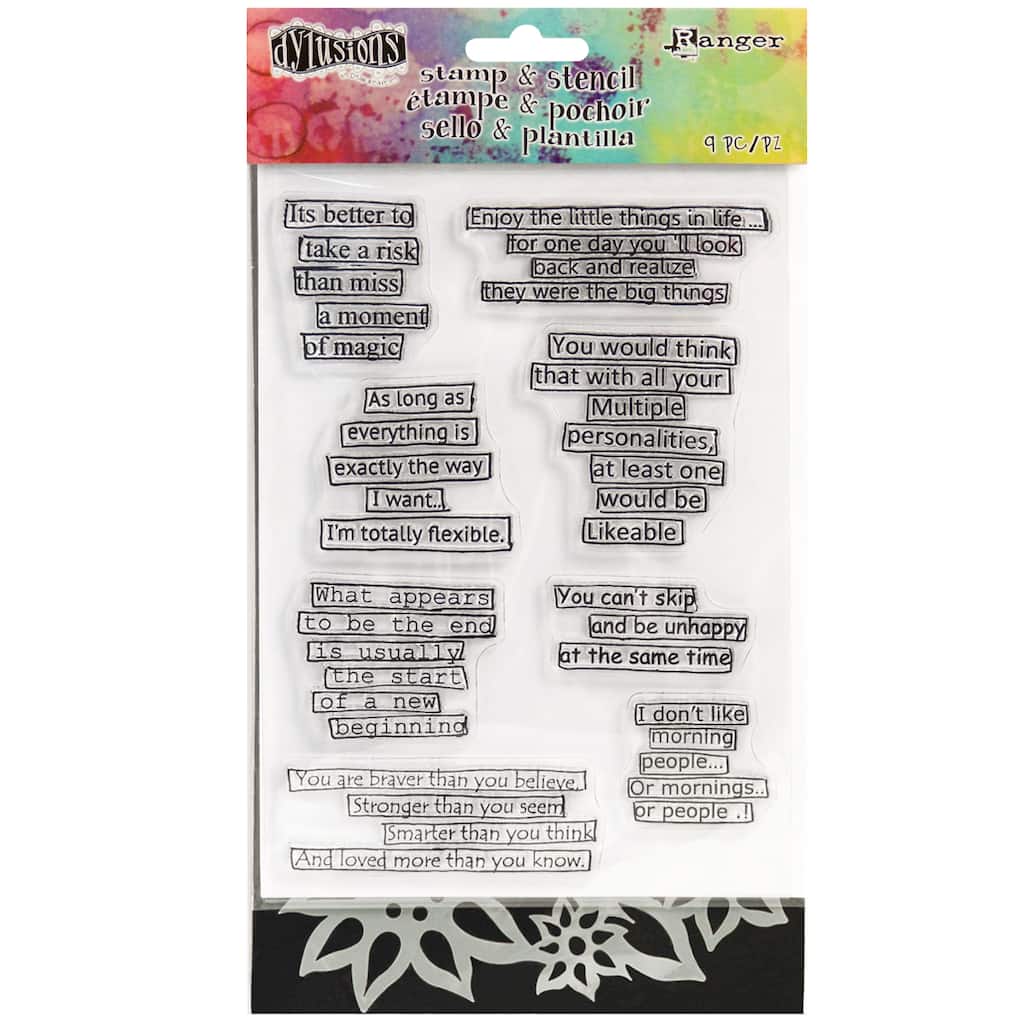 dylusions
Ranger
stamp & stencil
étampe & pochoir
sello & plantilla
9 PC/PZ
Its better to
take a risk
than miss
a moment
of magic
Enjoy the little things in life....
for one day you 'll look
back and realize
they were the big things
As long as
everything is
exactly the way
I want..
I'm totally flexible.
You would think
that with all your
Multiple
personalities,
at least one
would be
Likeable
What appears
to be the end
is usually
the start
of a new
beginning
You can't skip
and be unhappy
at the same time
I don't like
morning
people...
Or mornings..
or people .!
You are braver than you believe,
Stronger than you seem
Smarter than you think
And loved more than you know.